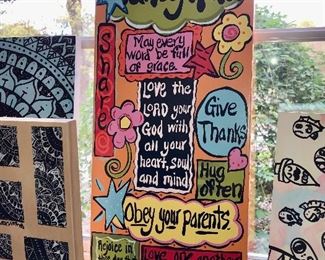 Share
May every
word be full
of grace.
Love the
LORD your
God with
all your
heart, soul
and mind
Give
Thanks
Hug
often
Obey your parents.
Rejoice in
Love one another